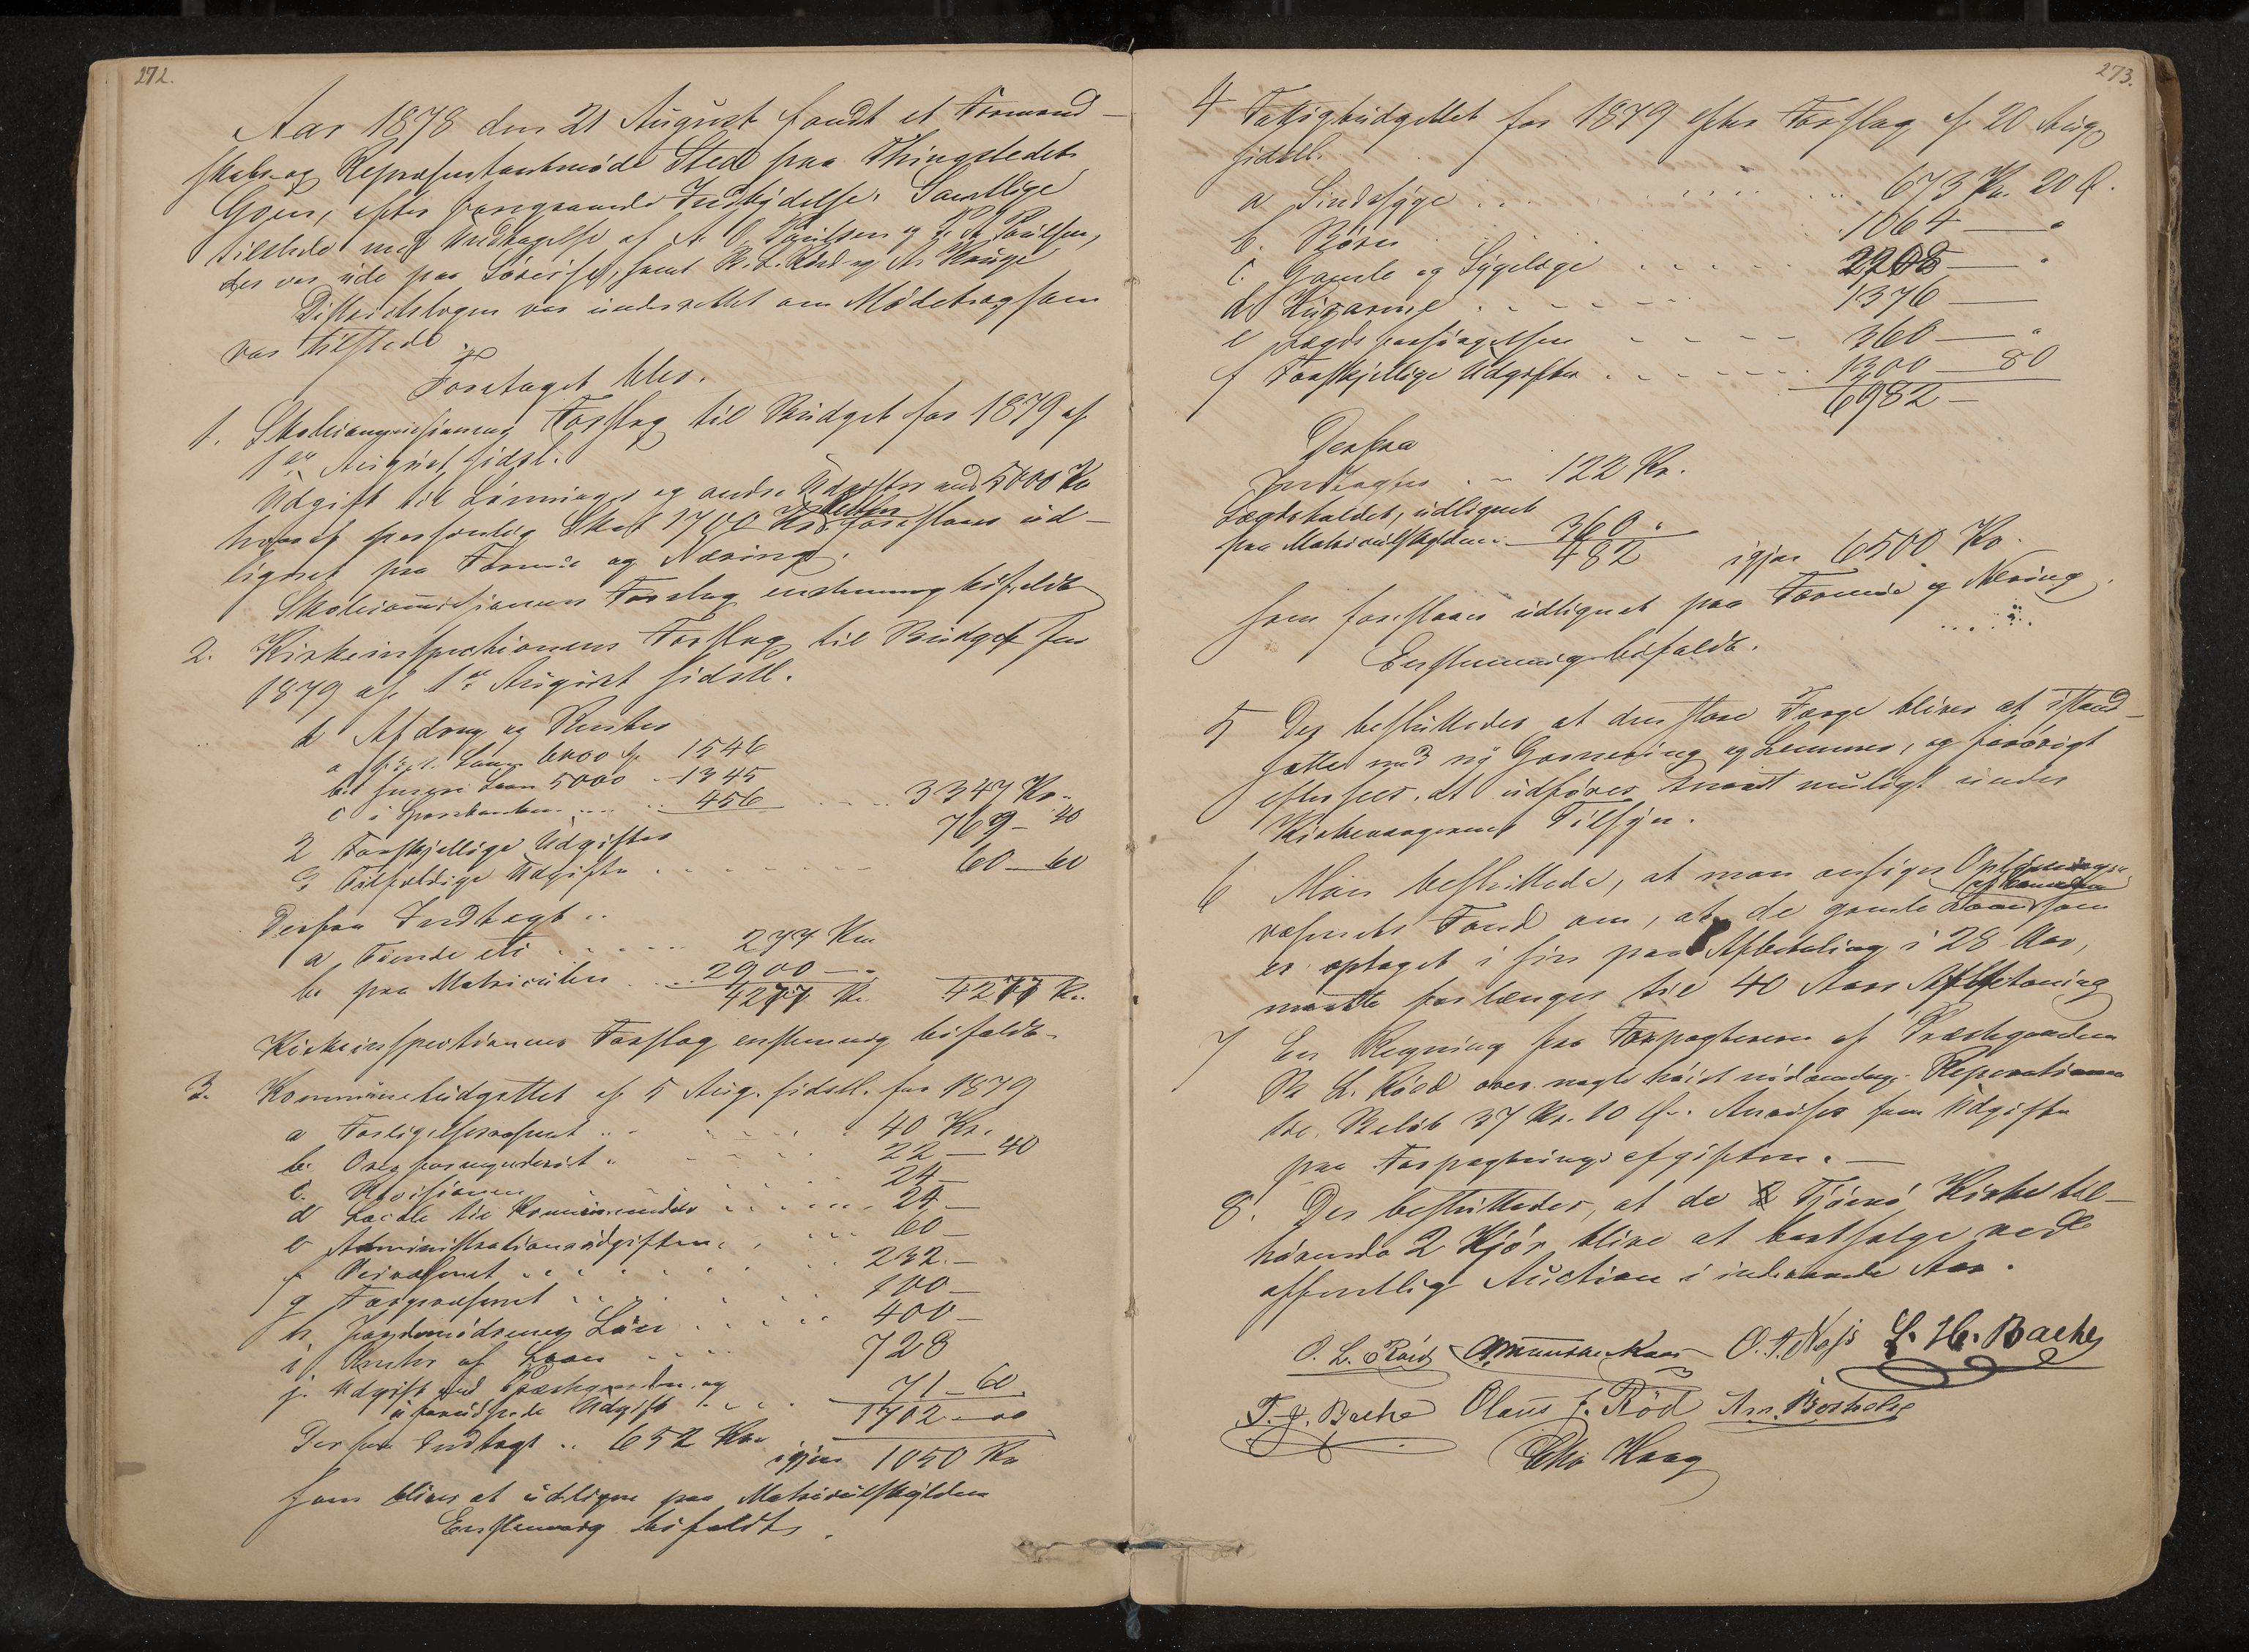 272.
Aar 1878 den 21 August holdt et Formand-
skabs og Repræsentantmøde Sted paa Thingstedet
Goen, efter foregaaende Indbydelse. Samtlige
tilstede med Undtagelse af A. O. Paulsen og Paulsen,
der var ude paa Søreise, samt B. L. Röed og A. Hauge
Distriktslægen var underrettet om Mødet og som
var tilstede.
Foretaget blev.
1. Skolekommissionens Forslag til Budget for 1879 af
1ste August sidstl.
Udgift til Lønninger og andre Udgifter med 5000 Kr
hvoraf personlig Skat 1700 Kr foreslaaes ud-
lignet paa Formue og Næring.
Skolekommissionens Forslag enstemmig bifaldt
2. Kirkeinspectionens Forslag til Budget for
1879 af 1ste August sidstl.
Afdrag og Renter
a Laan 6000 1546
b Laan 5000 - 1345
c i Sparebanken 456 3347 Kr.
2 Forskjellige Udgifter 769 - 40
3 Tilfældige Udgifter 60 - 60
Derfra Indtægt
a Tiende etc 277 Kr
b paa Matriculen 2900 -
4277 Kr. 4277 Kr.
Kirkeinspectionens Forslag enstemmig bifaldt.
3. Kommunebudgettet af 5 Aug. sidstl. for 1879
a Forligelsesvæsenet 40 Kr.
b. 22 - 40
c. Revisionen 24 -
d Locale til Kommunemøder 24 -
e Administrationsudgifter 60 -
f Veivæsenet 232. -
g Færgevæsenet 100 -
h Jordemødrenes Løn 400 -
i Renter af Laan 728
j. Udgift ved Præstegaarden og
uforudseede Udgift 71 - 60
1702 - 00
Derfra Indtægt 652 Kr.
igjen 1050 Kr
som bliver at udligne paa Matriculskylden
Enstemmig bifaldt.
273.
4 Fattigbudgettet for 1879 efter Forslag af 20 Aug
sidstl.
a Sindssyge 673 Kr. 20 Ø.
b. Børn 1064 -
c. Gamle og Sygelige 2208 -
d 1376 -
e Lægdsforsørgelsen 360 -
f Forskjellige Udgifter 1300 - 80
6982 -
Derfra
Indtægter 122 Kr.
Lægdsholdet, udlignet
paa Matriculskylden 360 "
482 igjen 6500 Kr.
som foreslaaes udlignet paa Formue og Næring.
Enstemmig bifaldt.
5 Der besluttedes at den store Færge bliver at istand-
sætte med ny Garnering og Lemmer, og forøvrigt
eftersees, at udføres snarest muligt under
Kirkeværgernes Tilsyn.
6 Man besluttede, at man ansøger Oplysnings-
væsenets Fond om, at de gamle Laan som
er optaget i sin paa Afbetaling i 28 Aar,
maatte forlænges til 40 Aars Afbetaling
7 En Regning fra Forpagteren af Præstegaarden
B. L. Röed over nogle høist nødvendige Reparationer
til Beløb 37 Kr. 10 Ør. Anvises som Udgift
paa Forpagtningsafgiften. -
8. Der besluttedes, at de Tjømø Kirke til-
hørende 2 Kjør blive at bortsælge ved
offentlig Auction i indeværende Aar.
O. L. Röed O. A. Næss L. H. Bache
T. J. Bache Olaus J. Röd
Otto Haag